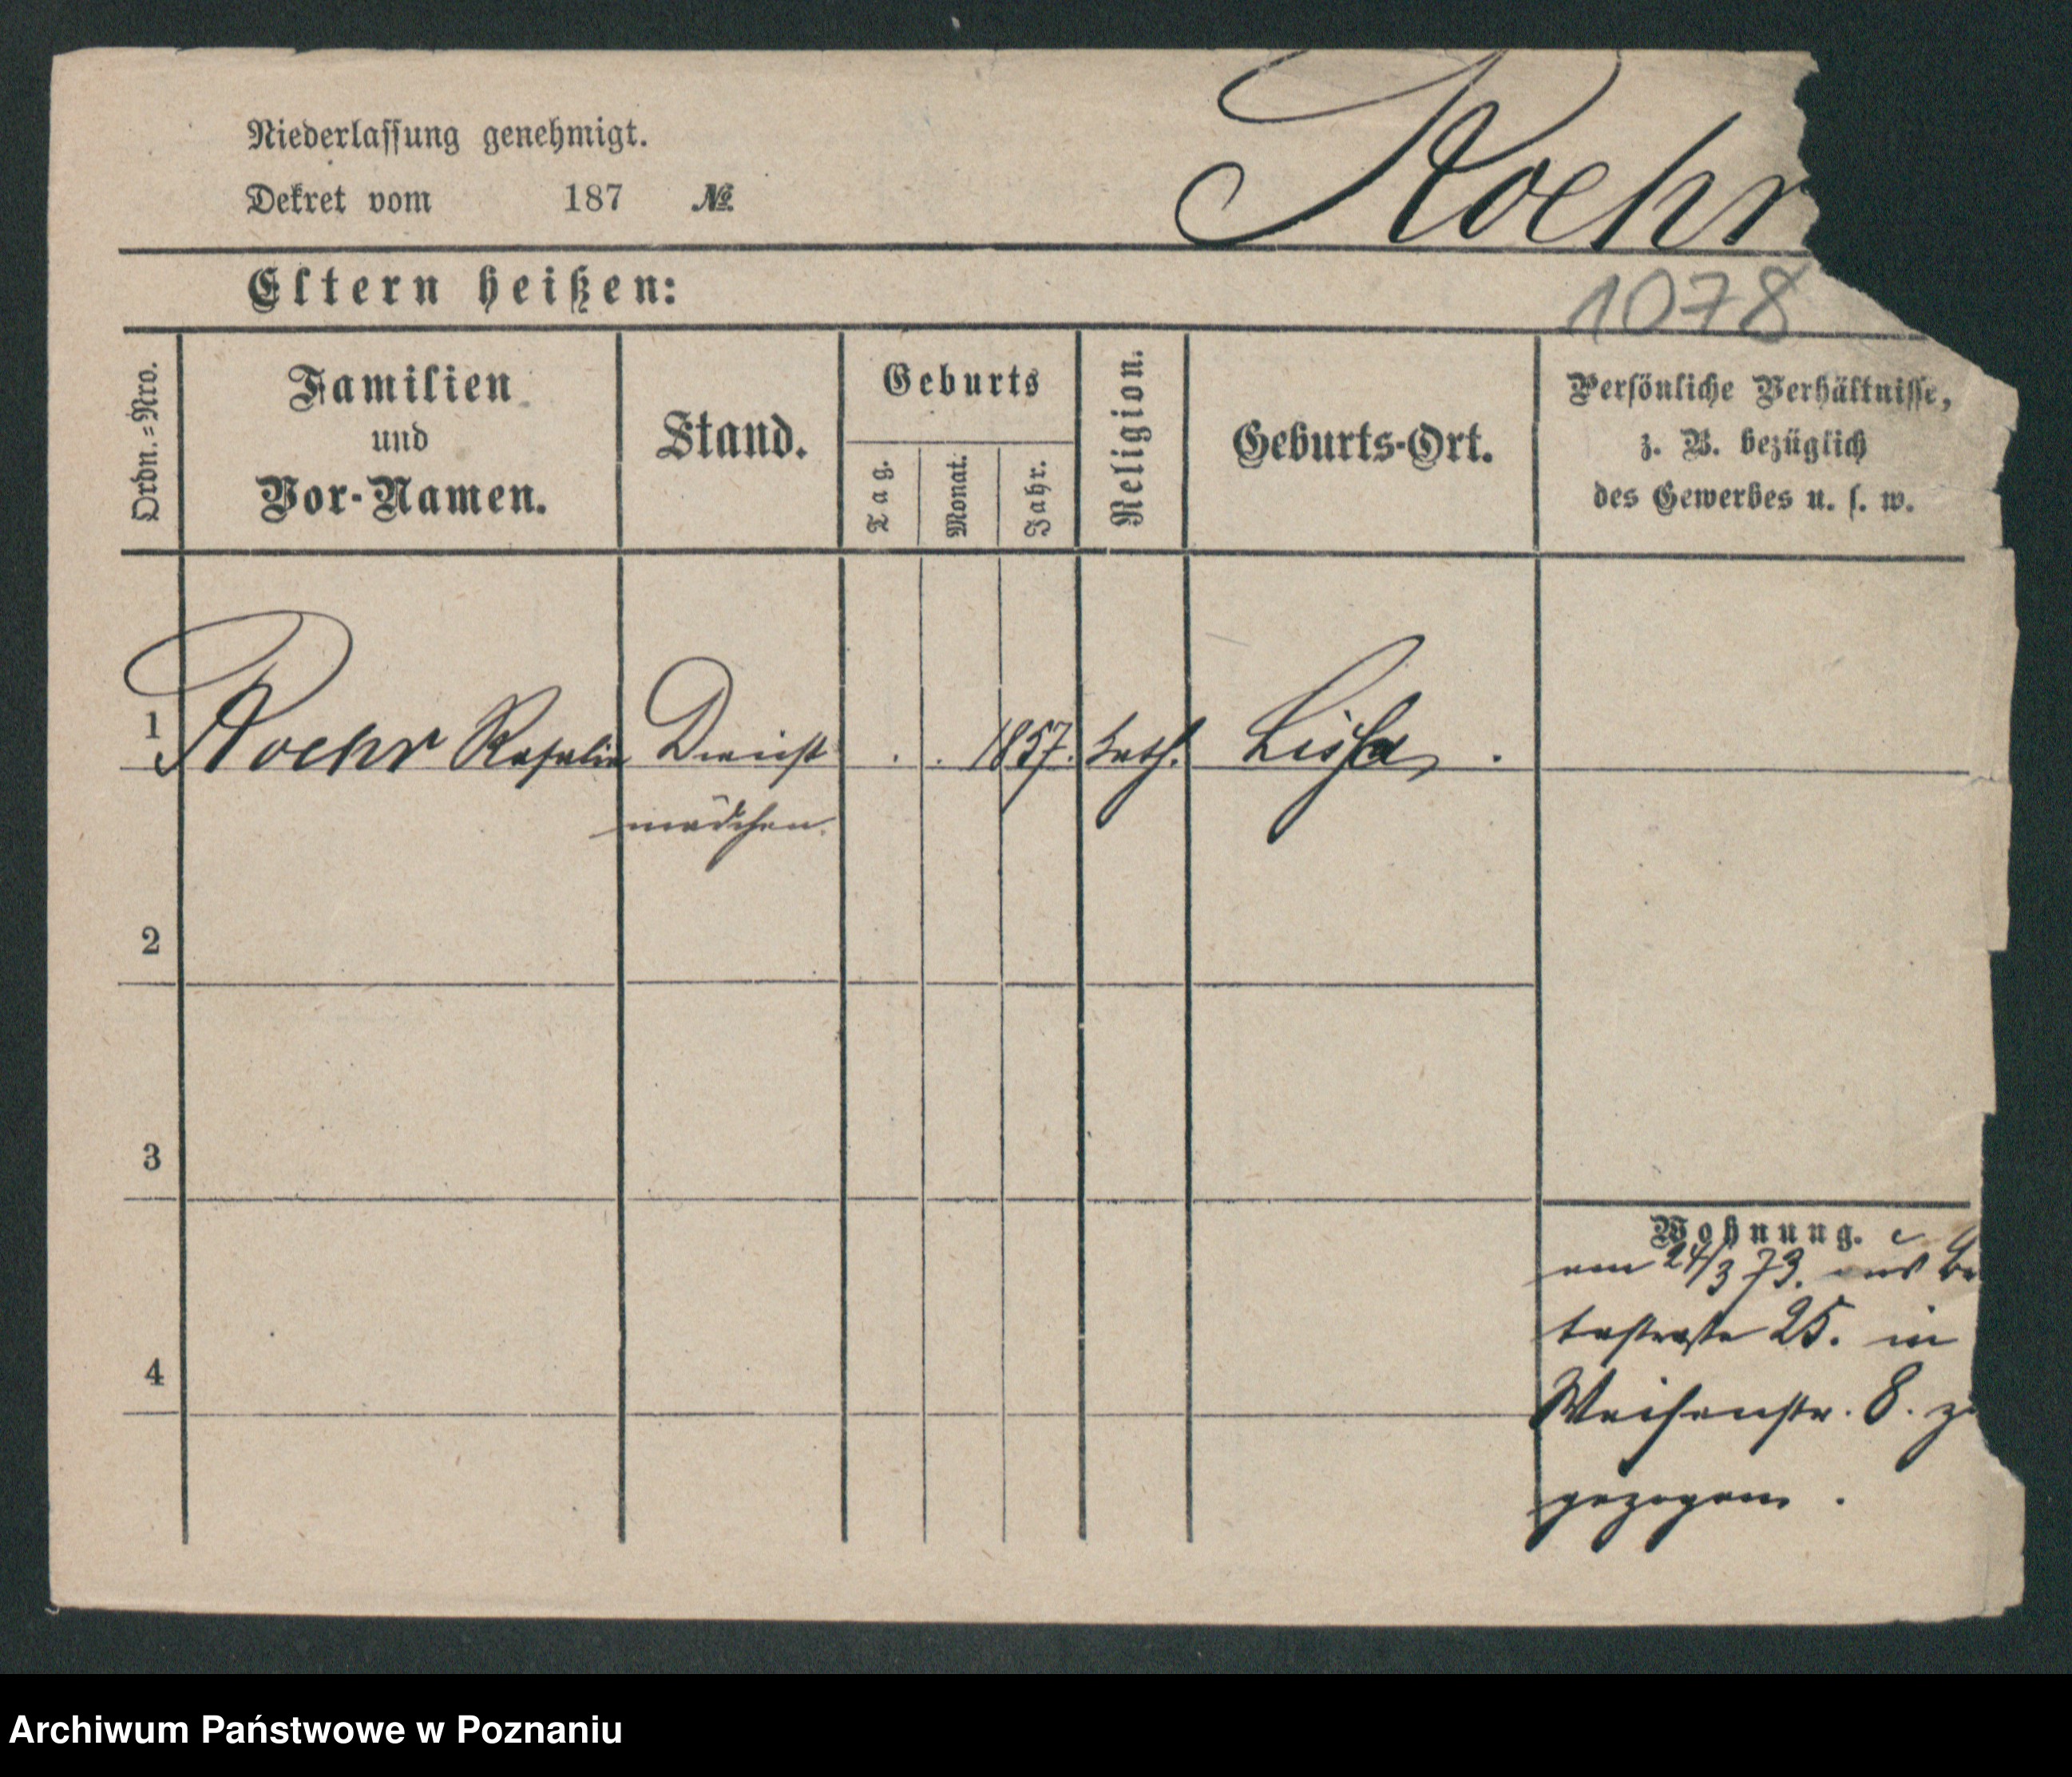 Niederlassung genehmigt.
Dekret vom 187 №
Roehr
Eltern heißen:
1078
Ordn.=Nro.
Familien
und
Vor-Namen.
Stand.
Geburts
Tag.
Monat.
Jahr.
Religion.
Geburts-Ort.
Persönliche Verhältnisse,
z. B. bezüglich
des Gewerbes u. s. w.
1 Roehr Rosalie Dienst . . 1857. kath. Lissa .
mädchen.
2
3
Wohnung.
am 24/3 73. aus
25. in
4
Waisenstr. 8.
gezogen .
Archiwum Państwowe w Poznaniu